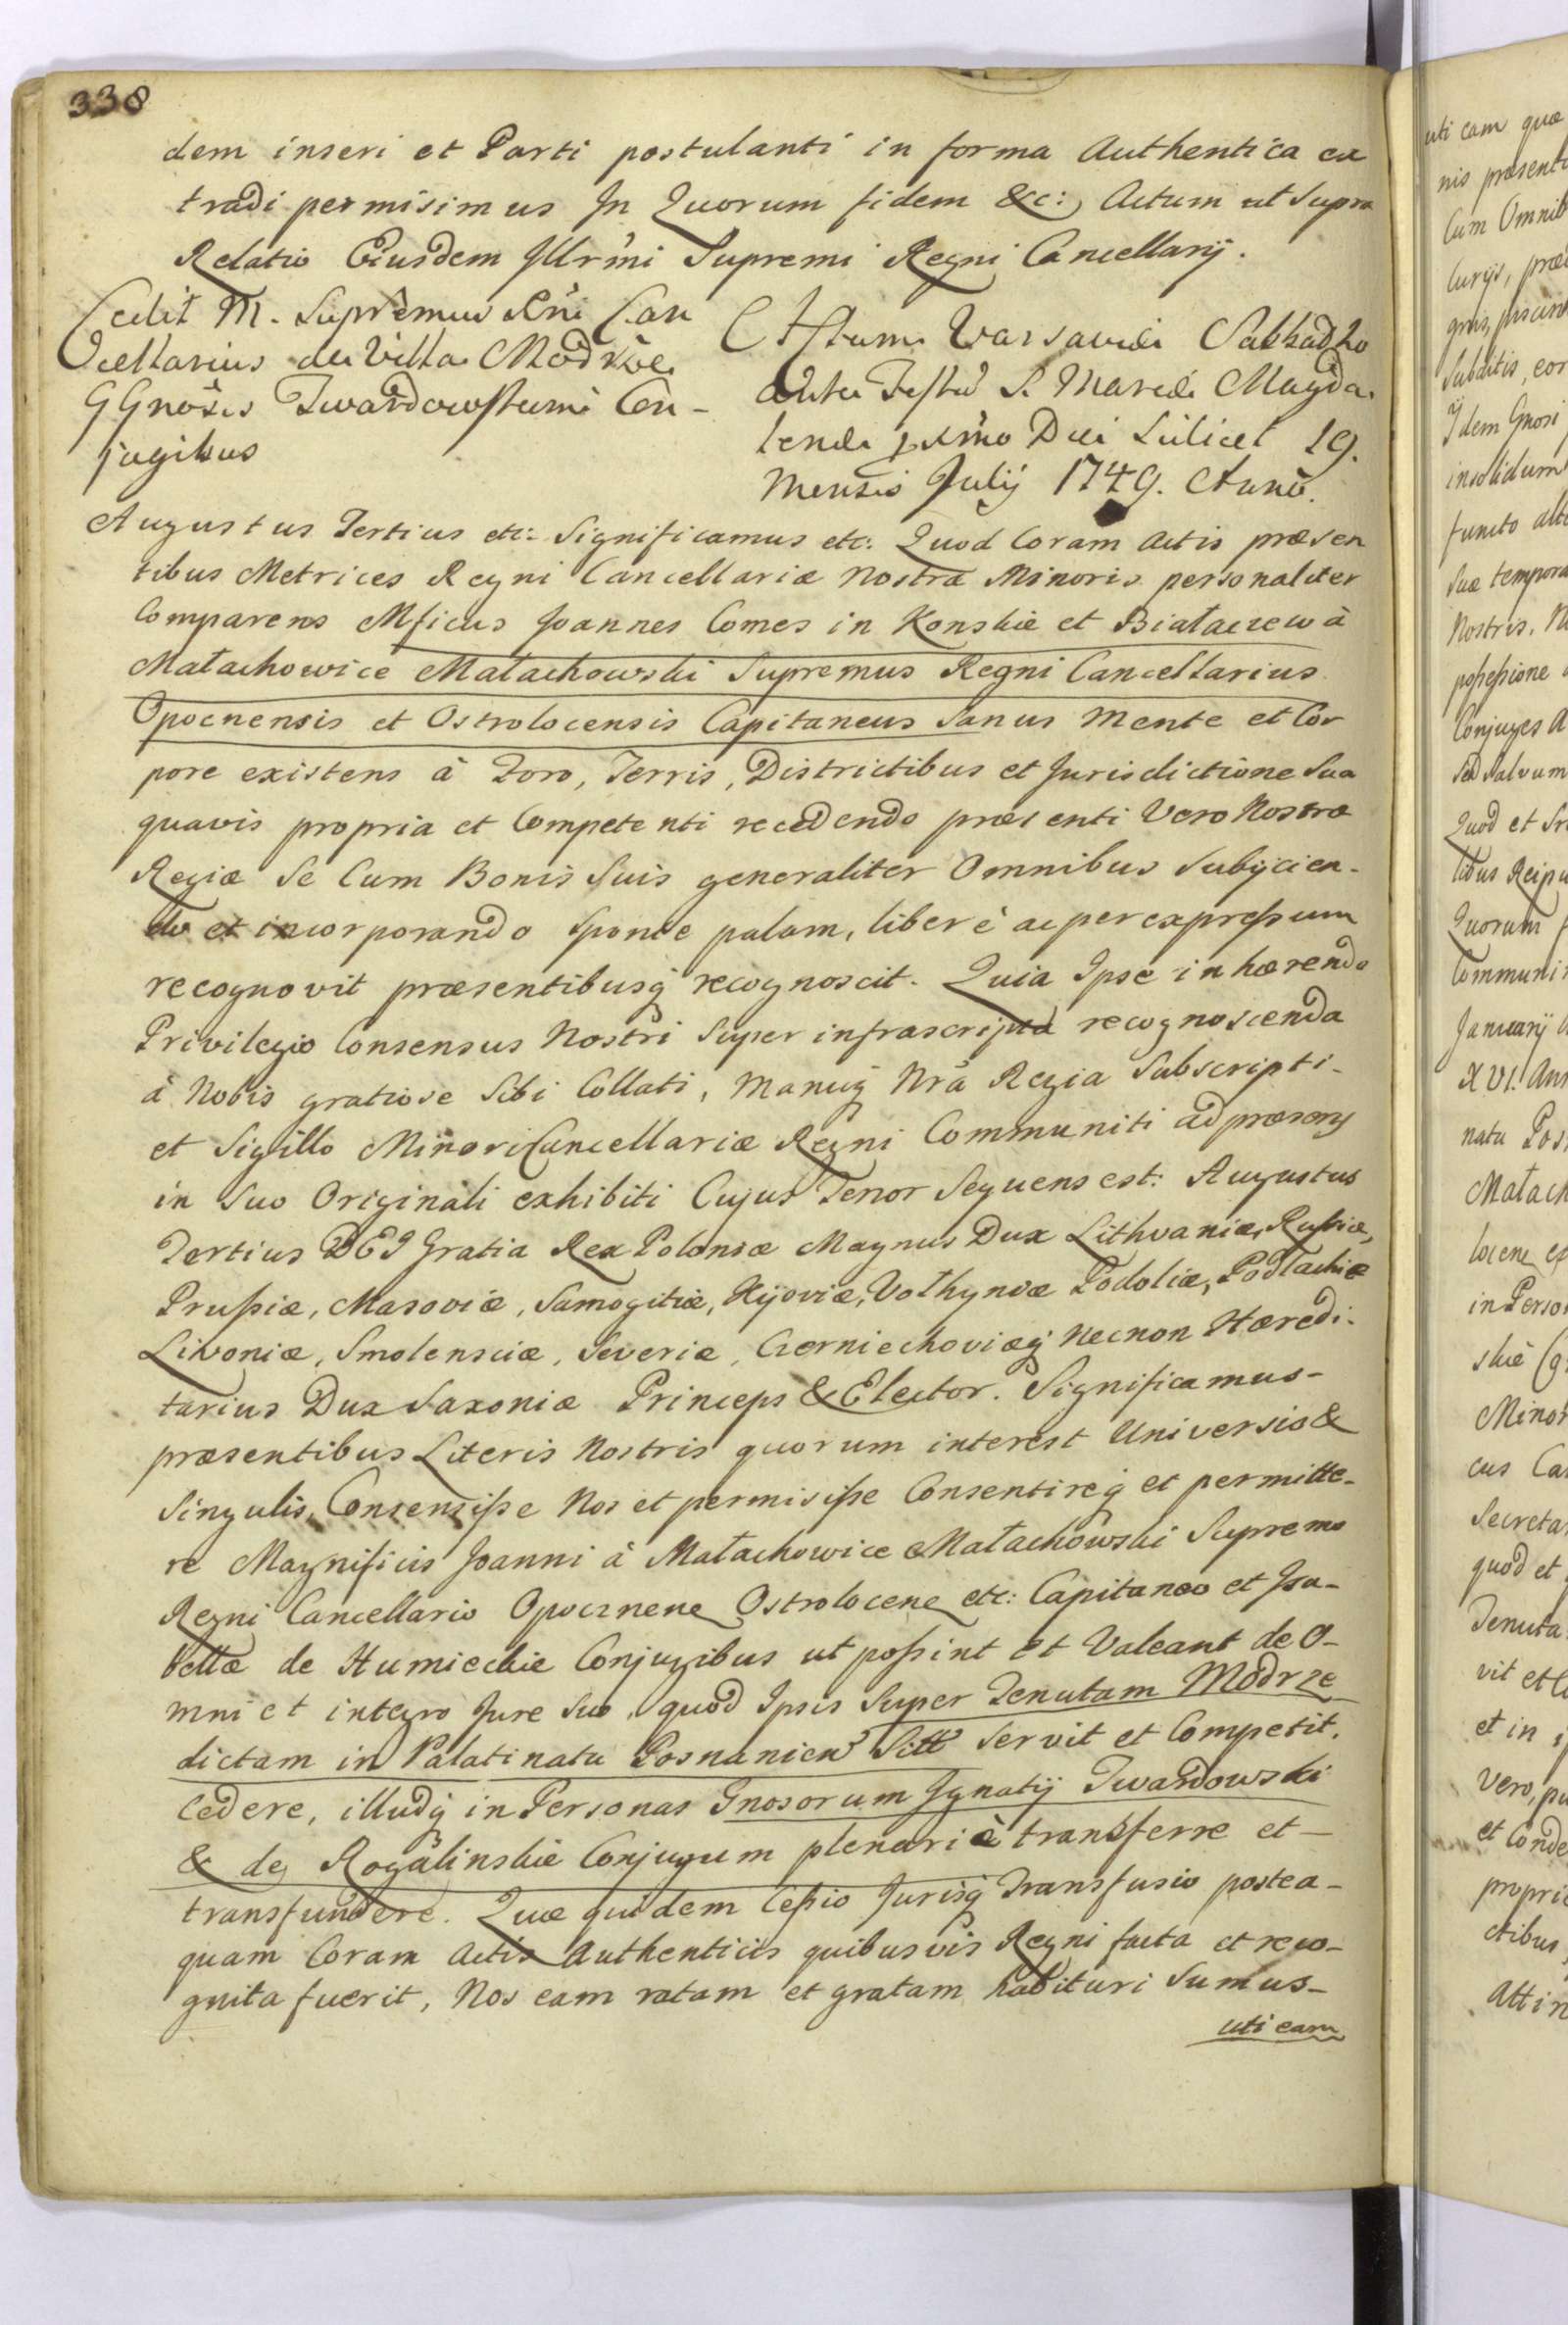 338
dem inseri et Parti postulanti in forma Authentica ex
tradi permisimus In Quorum fidem &c: Actum ut Supra
Relatio Eiusdem Illrmi Supremi Regni Cancellarij.
Cedit M. Supremus Rni Can
cellarius de Villa Modrze
GGnosis Twardowskiemi Con-
jugibus
Actum Varsaviæ Sabbatho
Ante Festū S. Mariæ Magda
lenæ pximo Die Scilicet 19.
Mensis Julij 1749. Anno.
Augustus Tertius etc: Significamus etc: Quod Coram Actis præsen
tibus Metrices Regni Cancellariæ Nostræ Minoris personaliter
Comparens Mficus Joannes Comes in Konskie et Białaczew à
Małachowice Małachowski Supremus Regni Cancellarius
Opocnensis et Ostrolocensis Capitaneus Sanus Mente et Cor
pore existens à Foro, Terris, Districtibus et Jurisdictione Sua
quavis propria et Competenti recedendo præsenti Vero Nostræ
Regiæ Se Cum Bonis Suis generaliter Omnibus Subijcien-
do et incorporando Sponte palam, liberè ac per expreſsum
recognovit præsentibusq̃ recognoscit. Quia Ipse inhærendo
Privilegio Consensus Nostri Super infrascripta recognoscenda
à Nobis gratiose Sibi Collati, Manuq̃ Nrã Regia Subscripti-
et Sigillo Minori Cancellariæ Regni Communiti ad præsens
in Suo Originali exhibiti Cujus Tenor Sequens est: Augustus
Tertius DEI Gratia Rex Poloniæ Magnus Dux Lithvaniæ, Ruſsiæ,
Pruſsiæ, Masoviæ, Samogitiæ, Kijoviæ, Volhyniæ Podoliæ, Podlachiæ
Livoniæ, Smolensciæ, Severiæ, Czerniechoviæq̃ Necnon Hæredi-
tarius Dux Saxoniæ Princeps & Elector. Significamus-
præsentibus Literis Nostris quorum interest Universis &
Singulis, Consensiſse Nos et permisiſse Consentireq̃ et permitte-
re Magnificis Joanni à Małachowice Małachowski Supremo
Regni Cancellario Opocznen Ostrolocen etc: Capitaneo et Isa-
bellæ de Humieckie Conjugibus ut poſsint et Valeant de O-
mni et integro Jure Suo, quod Ipsis Super Tenutam Modrze
dictam in Palatinatu Posnanien Sitt Servit et Competit.
Cedere, illudq̃ in Personas Gnosorum Ignatij Twardowski
& de Rogalinskie Conjugum plenariè transferre et-
transfundere. Quæ quidem Ceſsio Jurisq̃ Transfusio postea-
quam Coram Actis Authenticis quibusvis Regni facta et reco-
gnita fuerit, Nos eam ratam et gratam habituri Sumus-
uti eam
uti eam quæ
nis præsenti
Cum Omnib
Subditis, cor
Idem Gnosi
insolidum
functo alt
Suæ tempora
Nostris. N
poſseſsione
Conjuges A
Sed Salvum
Quod et Sr
libus Reipu
Quorum f
Communi
Januarij
XVI. Ann
natu Pos
Małach
locen
in Perso
skie
Minor
cus Ca
Secreta
quod et
Tenuta
vit et C
et in
Vero, pu
et Conde
propri
ctibus
Attin